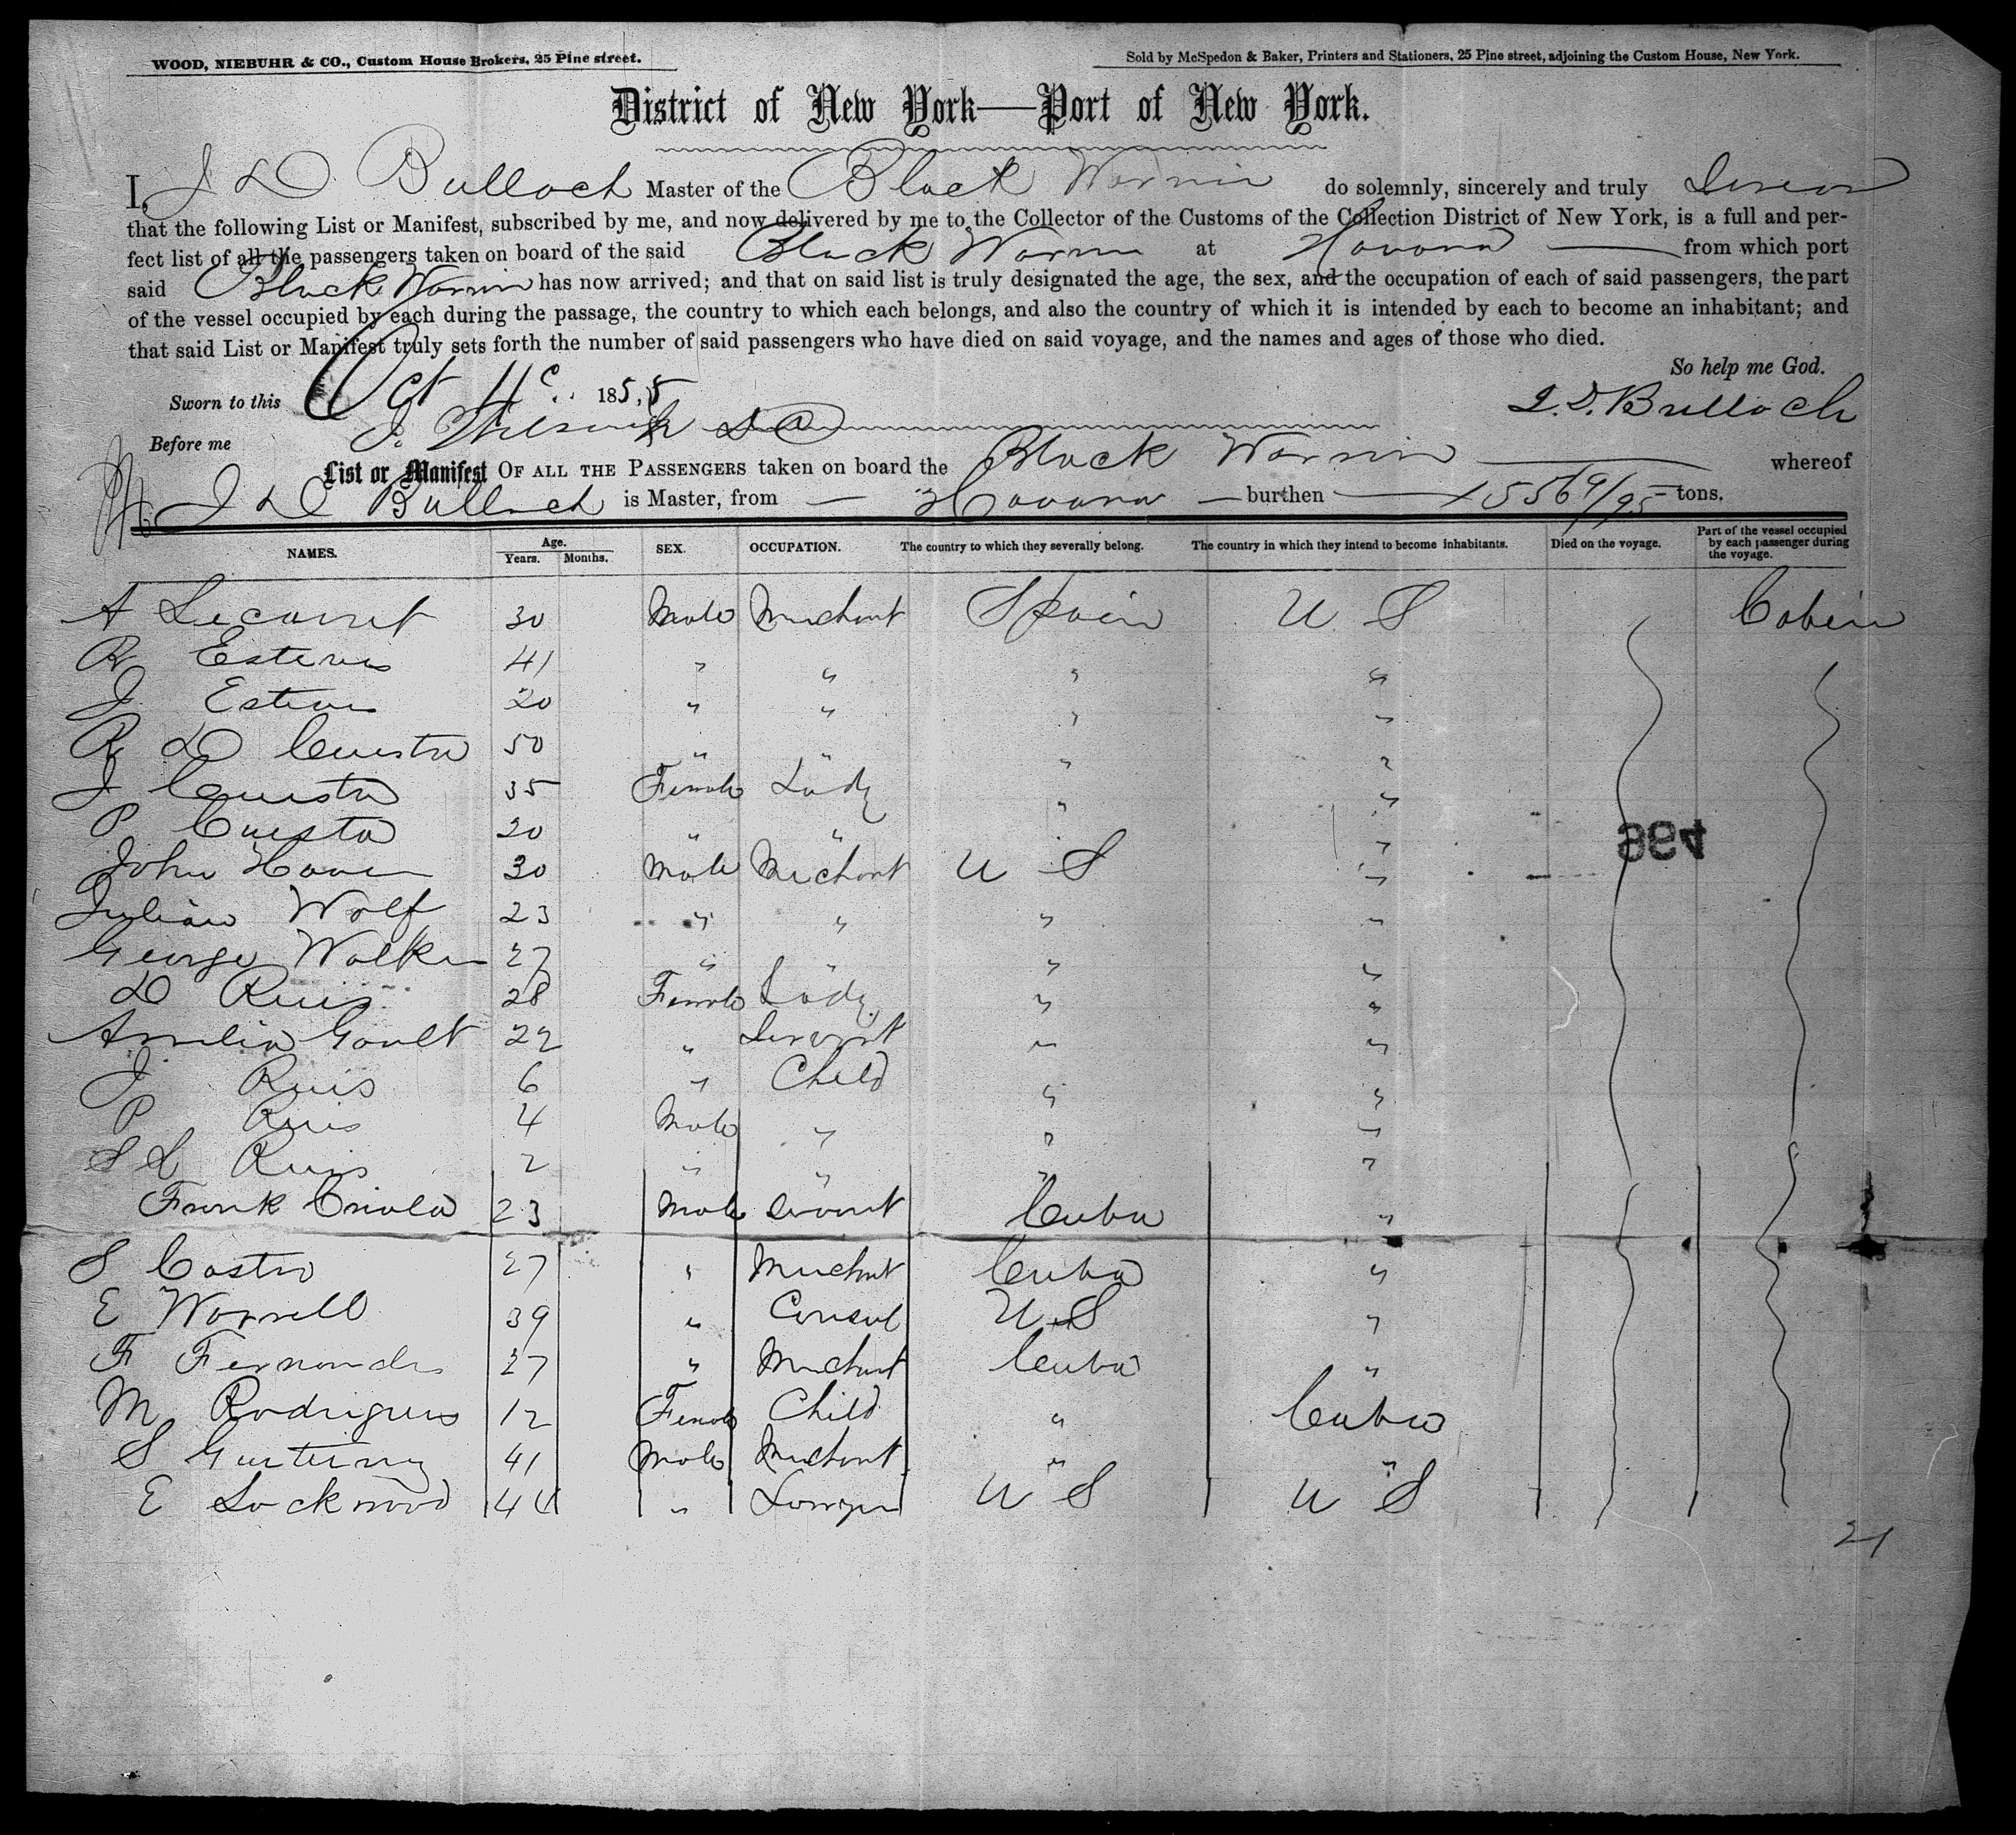 WOOD, NIEBUHR & CO., Custom House Brokers, 25 Pine street. Sold by McSpedon & Baker, Printers and Stationers, 25 Pine street, adjoining the Custom House, New York.
District of New York—Port of New York.
I, J D Bulloch Master of the Black Warrior do solemnly, sincerely and truly swear
that the following List or Manifest, subscribed by me, and now delivered by me to the Collector of the Customs of the Collection District of New York, is a full and per-
fect list of all the passengers taken on board of the said Black Warrior at Havana from which port
said Black Warrior has now arrived; and that on said list is truly designated the age, the sex, and the occupation of each of said passengers, the part
of the vessel occupied by each during the passage, the country to which each belongs, and also the country of which it is intended by each to become an inhabitant; and
that said List or Manifest truly sets forth the number of said passengers who have died on said voyage, and the names and ages of those who died.
So help me God.
Sworn to this Oct 1855
J. D. Bulloch
Before me
List or Manifest OF ALL THE PASSENGERS taken on board the Black Warrior whereof
J D Bulloch is Master, from Havana burthen 1556 9/95 tons.
NAMES. Age. Years. Months. SEX. OCCUPATION. The country to which they severally belong. The country in which they intend to become inhabitants. Died on the voyage. Part of the vessel occupied by each passenger during the voyage.
A 30 Male Merchant Spain U S Cabin
R Esteves 41 " " " "
J Esteves 20 " " " "
R D Cuesta 50 " " " "
J Cuesta 35 Female Lady " "
P Cuesta 20 " " " "
John 30 Male Merchant U S "
Julian Wolf 23 " " " "
George Walker 27 " " " "
D Ruis 28 Female Lady " "
Amelia Gault 22 " Servant " "
J Ruis 6 " Child " "
P Ruis 4 Male " " "
S L Ruis 2 " " " "
Frank Criolo 23 Male Servant Cuba "
S Castro 27 " Merchant Cuba "
E Worrell 39 " Consul U S "
F Fernandes 27 " Merchant Cuba "
M Rodrigues 12 Female Child " Cuba
S 41 Male Merchant " "
E Lockwood 44 " Lawyer U S U S
21